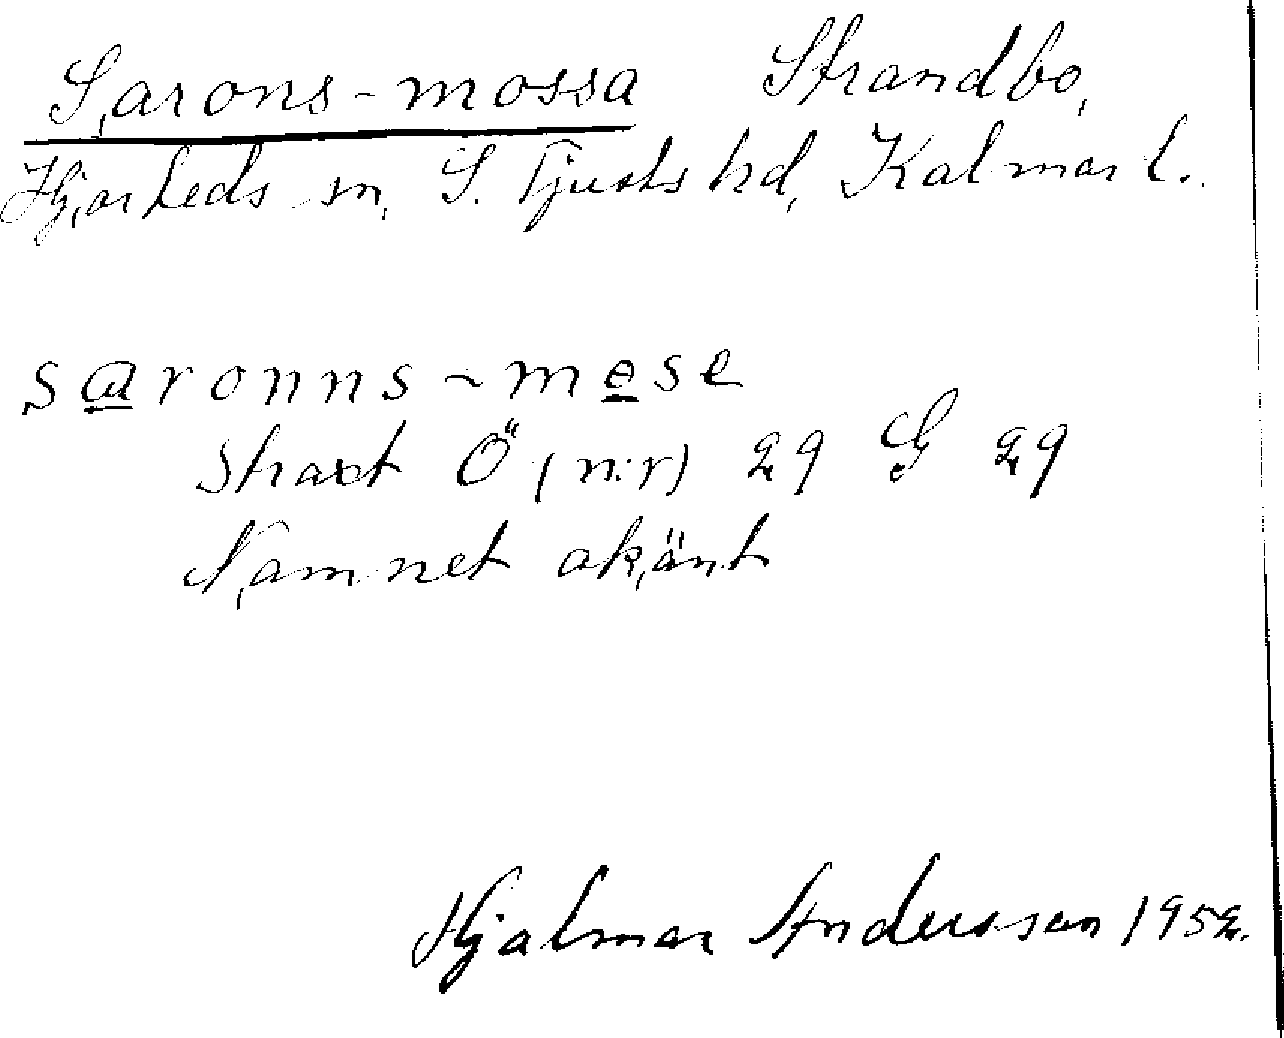 Sarons-mossa Strandbo,
Hjorteds sn, S. Tjusts hd, Kalmar l.
saronns-mese
Straxt Ö (n:r) 29 G 29
Namnet okänt
Hjalmar Andersson 1952.